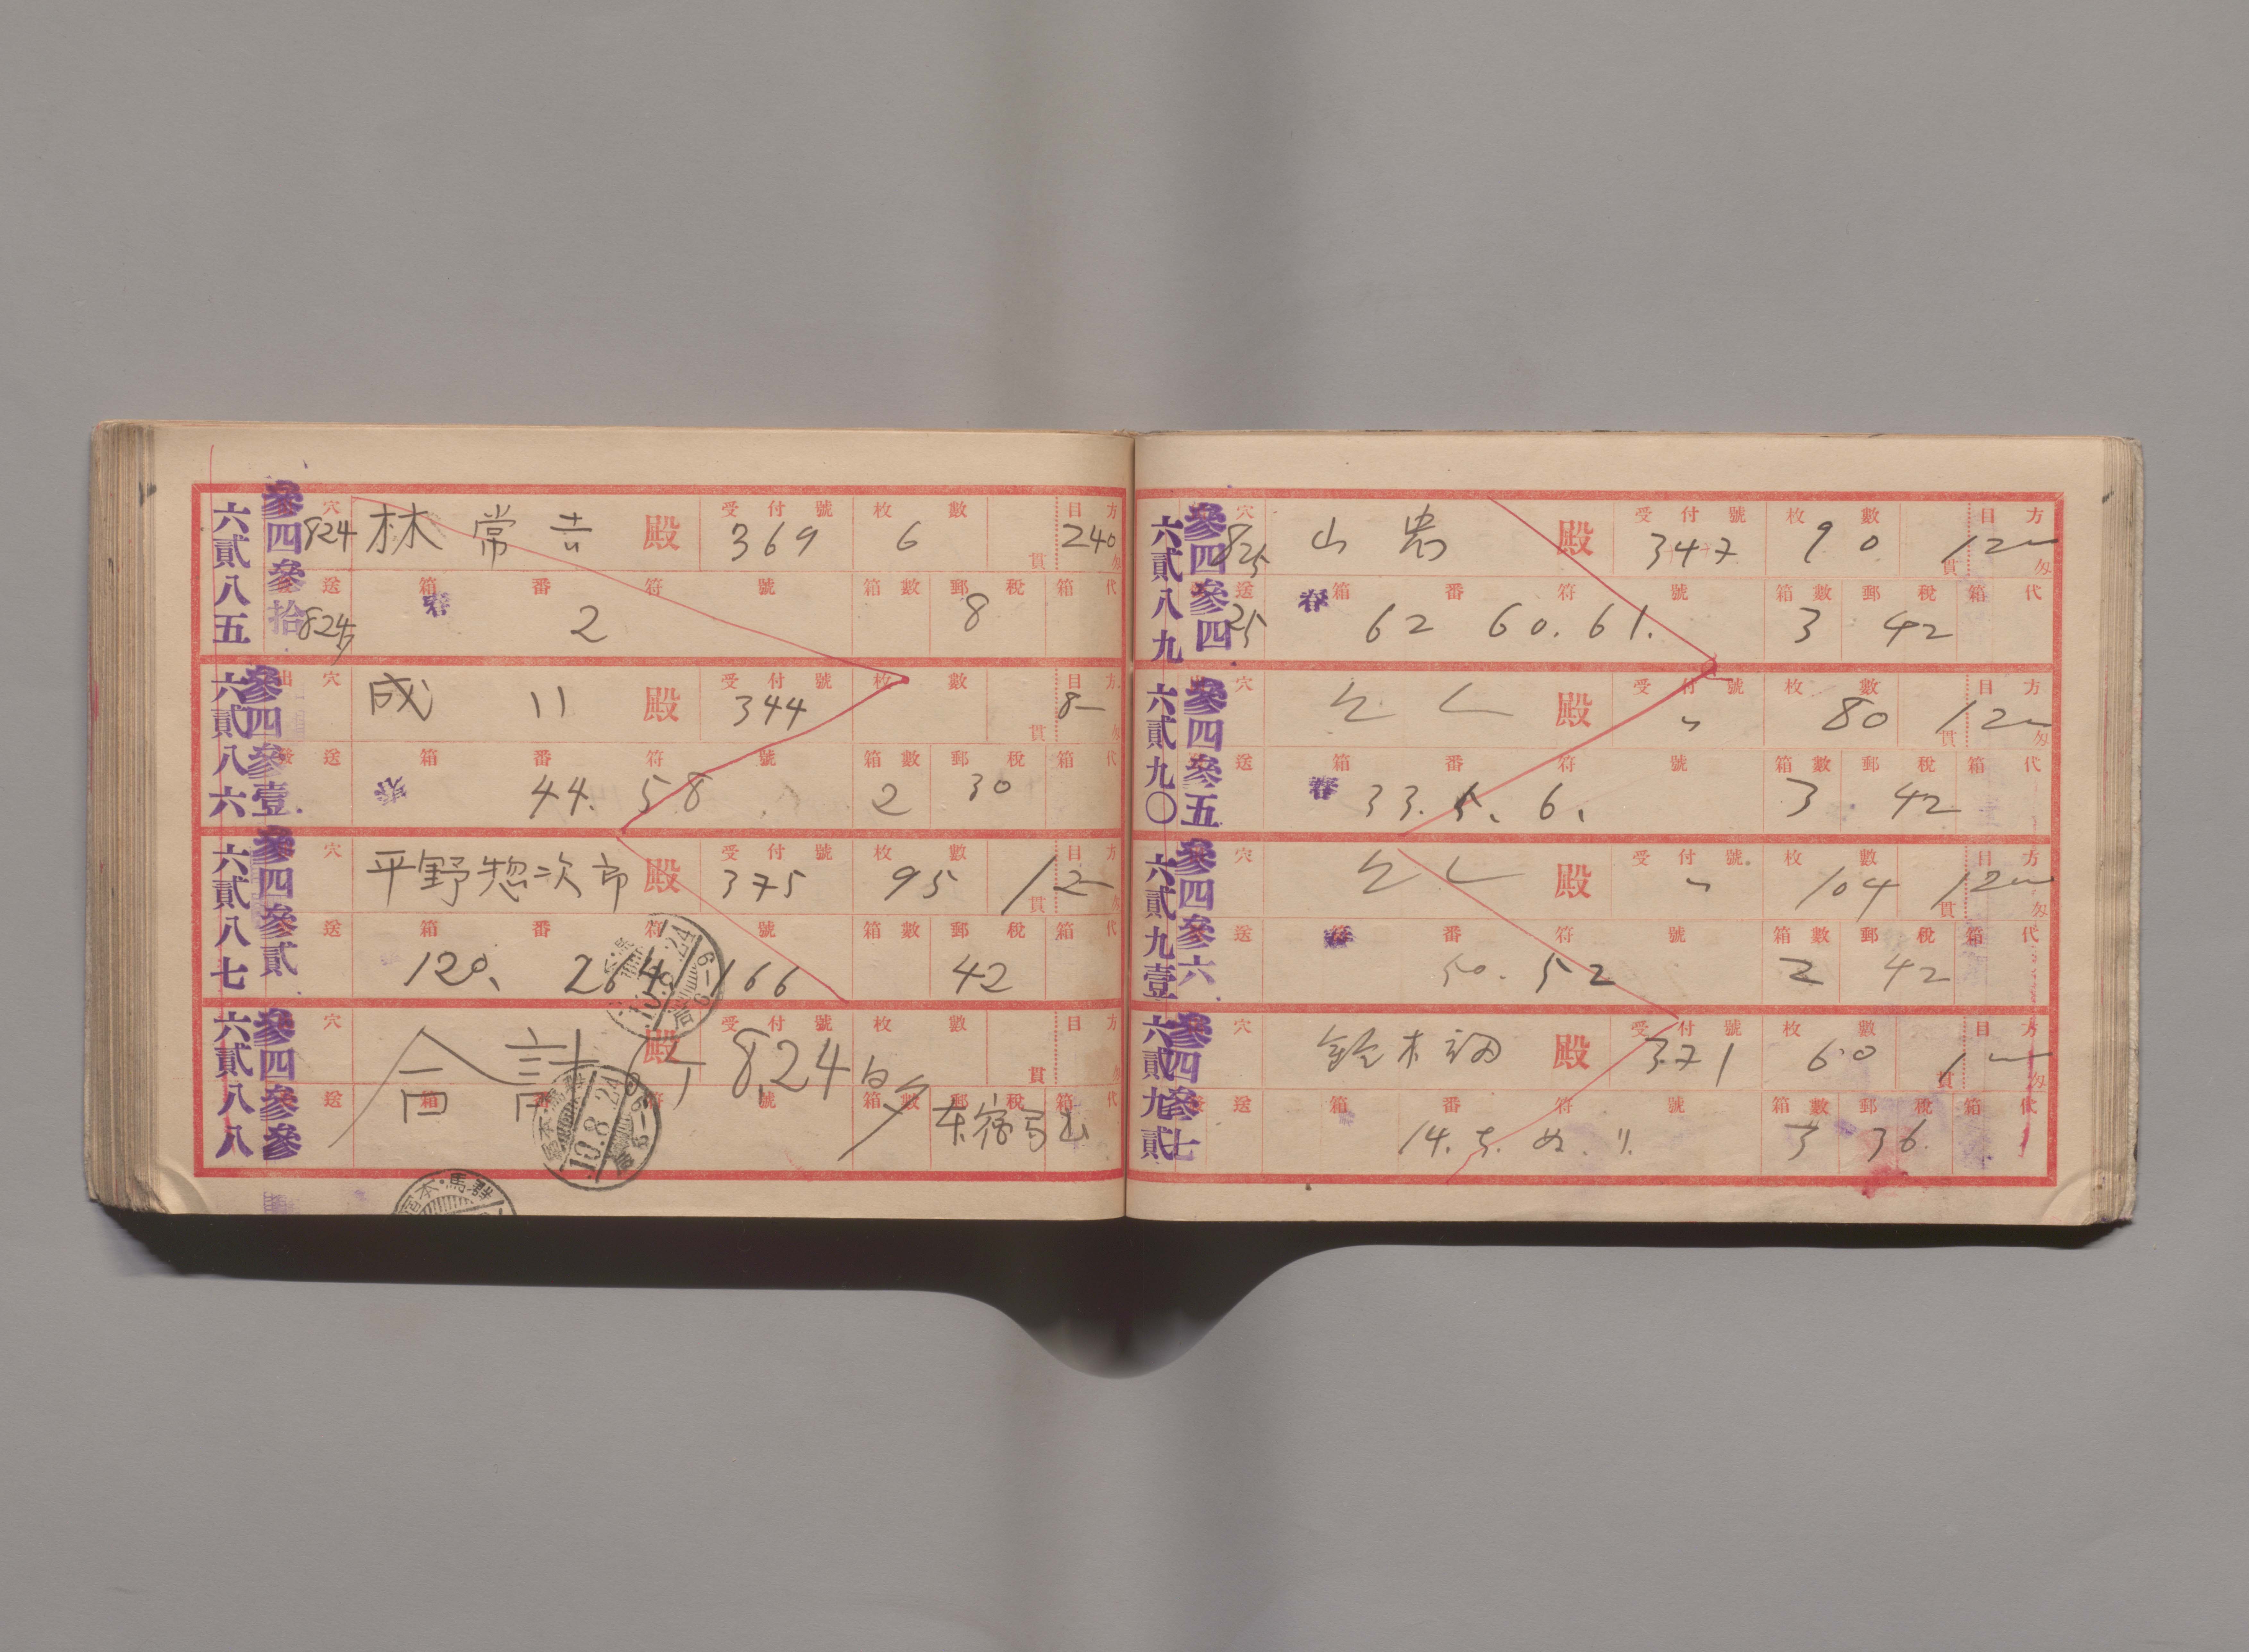 六貳八五
參四參拾
穴
824
林 常 吉 殿
受付號
369
枚數
6
目方
240
貫
匁
送
824
箱番符號
春
2
箱數
郵税
8
箱代
六貳八六
參四參壹
出穴
成 川 殿
受付號
344
枚數
目方
8
貫
匁
發送
箱番符號
44. 58
箱數
2
郵税
30
箱代
六貳八七
參四參貳
穴
平野惣次郎 殿
受付號
375
枚數
95
目方
12
貫
匁
送
箱番符號
120、 264 166
箱數
郵税
42
箱代
六貳八八
參四參參
穴
合計 殿
受付號
8,24
枚數
目方
貫
匁
送
箱番符號
箱數
郵税
箱代
10.8.24
六貳八九
參四參四
穴
825
山 殿
受付號
347
枚數
90
目方
12
貫
匁
送
25
箱番符號
春
62 60. 61.
箱數
3
郵税
42
箱代
六貳九〇
參四參五
穴
殿
受付號
〃
枚數
80
目方
12
貫
匁
送
箱番符號
春
33. 5、 6、
箱數
3
郵税
42
箱代
六貳九壹
參四參六
穴
殿
受付號
〃
枚數
104
目方
12
貫
匁
送
箱番符號
春
50. 52
箱數
2
郵税
42
箱代
六貳九貳
參四參七
穴
鈴木 殿
受付號
371
枚數
60
目方
1
貫
匁
送
箱番符號
14.
箱數
3
郵税
36
箱代